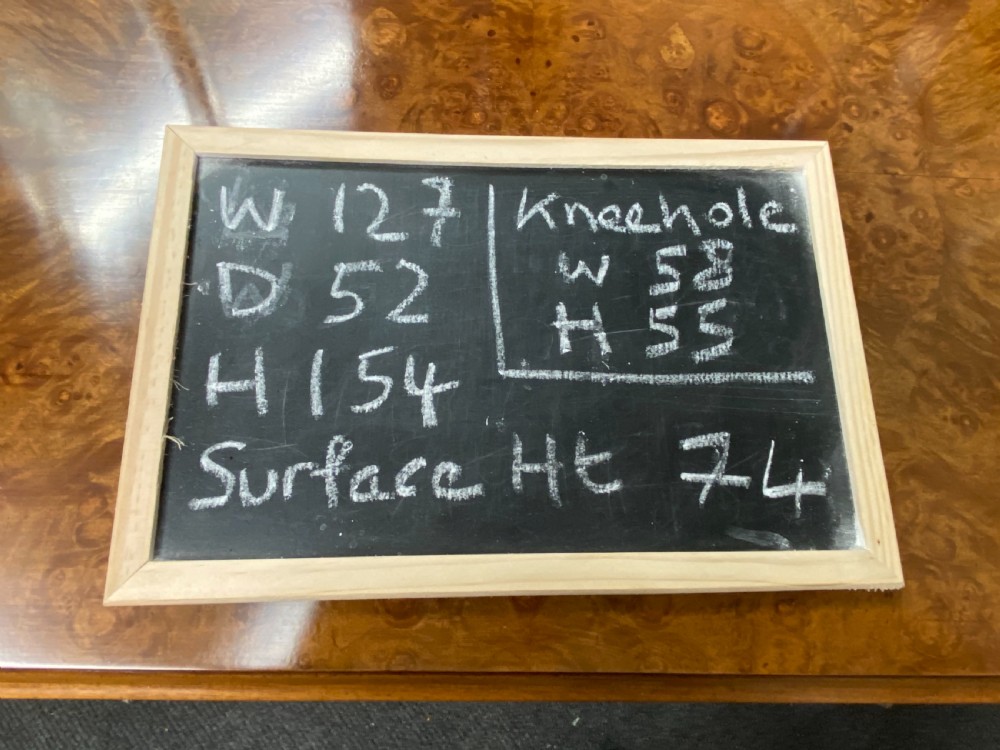 W 127
D 52
H 154
Kneehole
W 58
H 55
Surface Ht 74